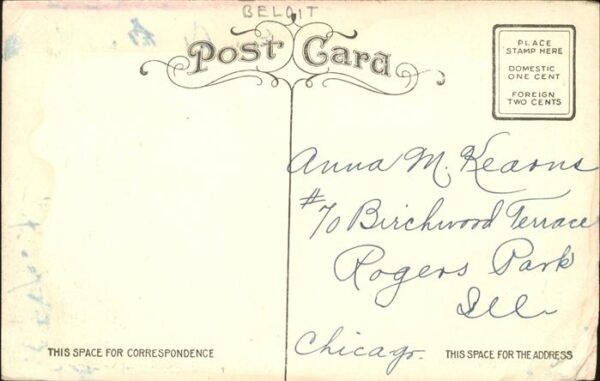 BELOIT
Post Card
PLACE
STAMP HERE
DOMESTIC
ONE CENT
FOREIGN
TWO CENTS
Anna M. Kearns
#70 Birchwood Terrace
Rogers Park
Ill
Chicago.
THIS SPACE FOR CORRESPONDENCE
THIS SPACE FOR THE ADDRESS